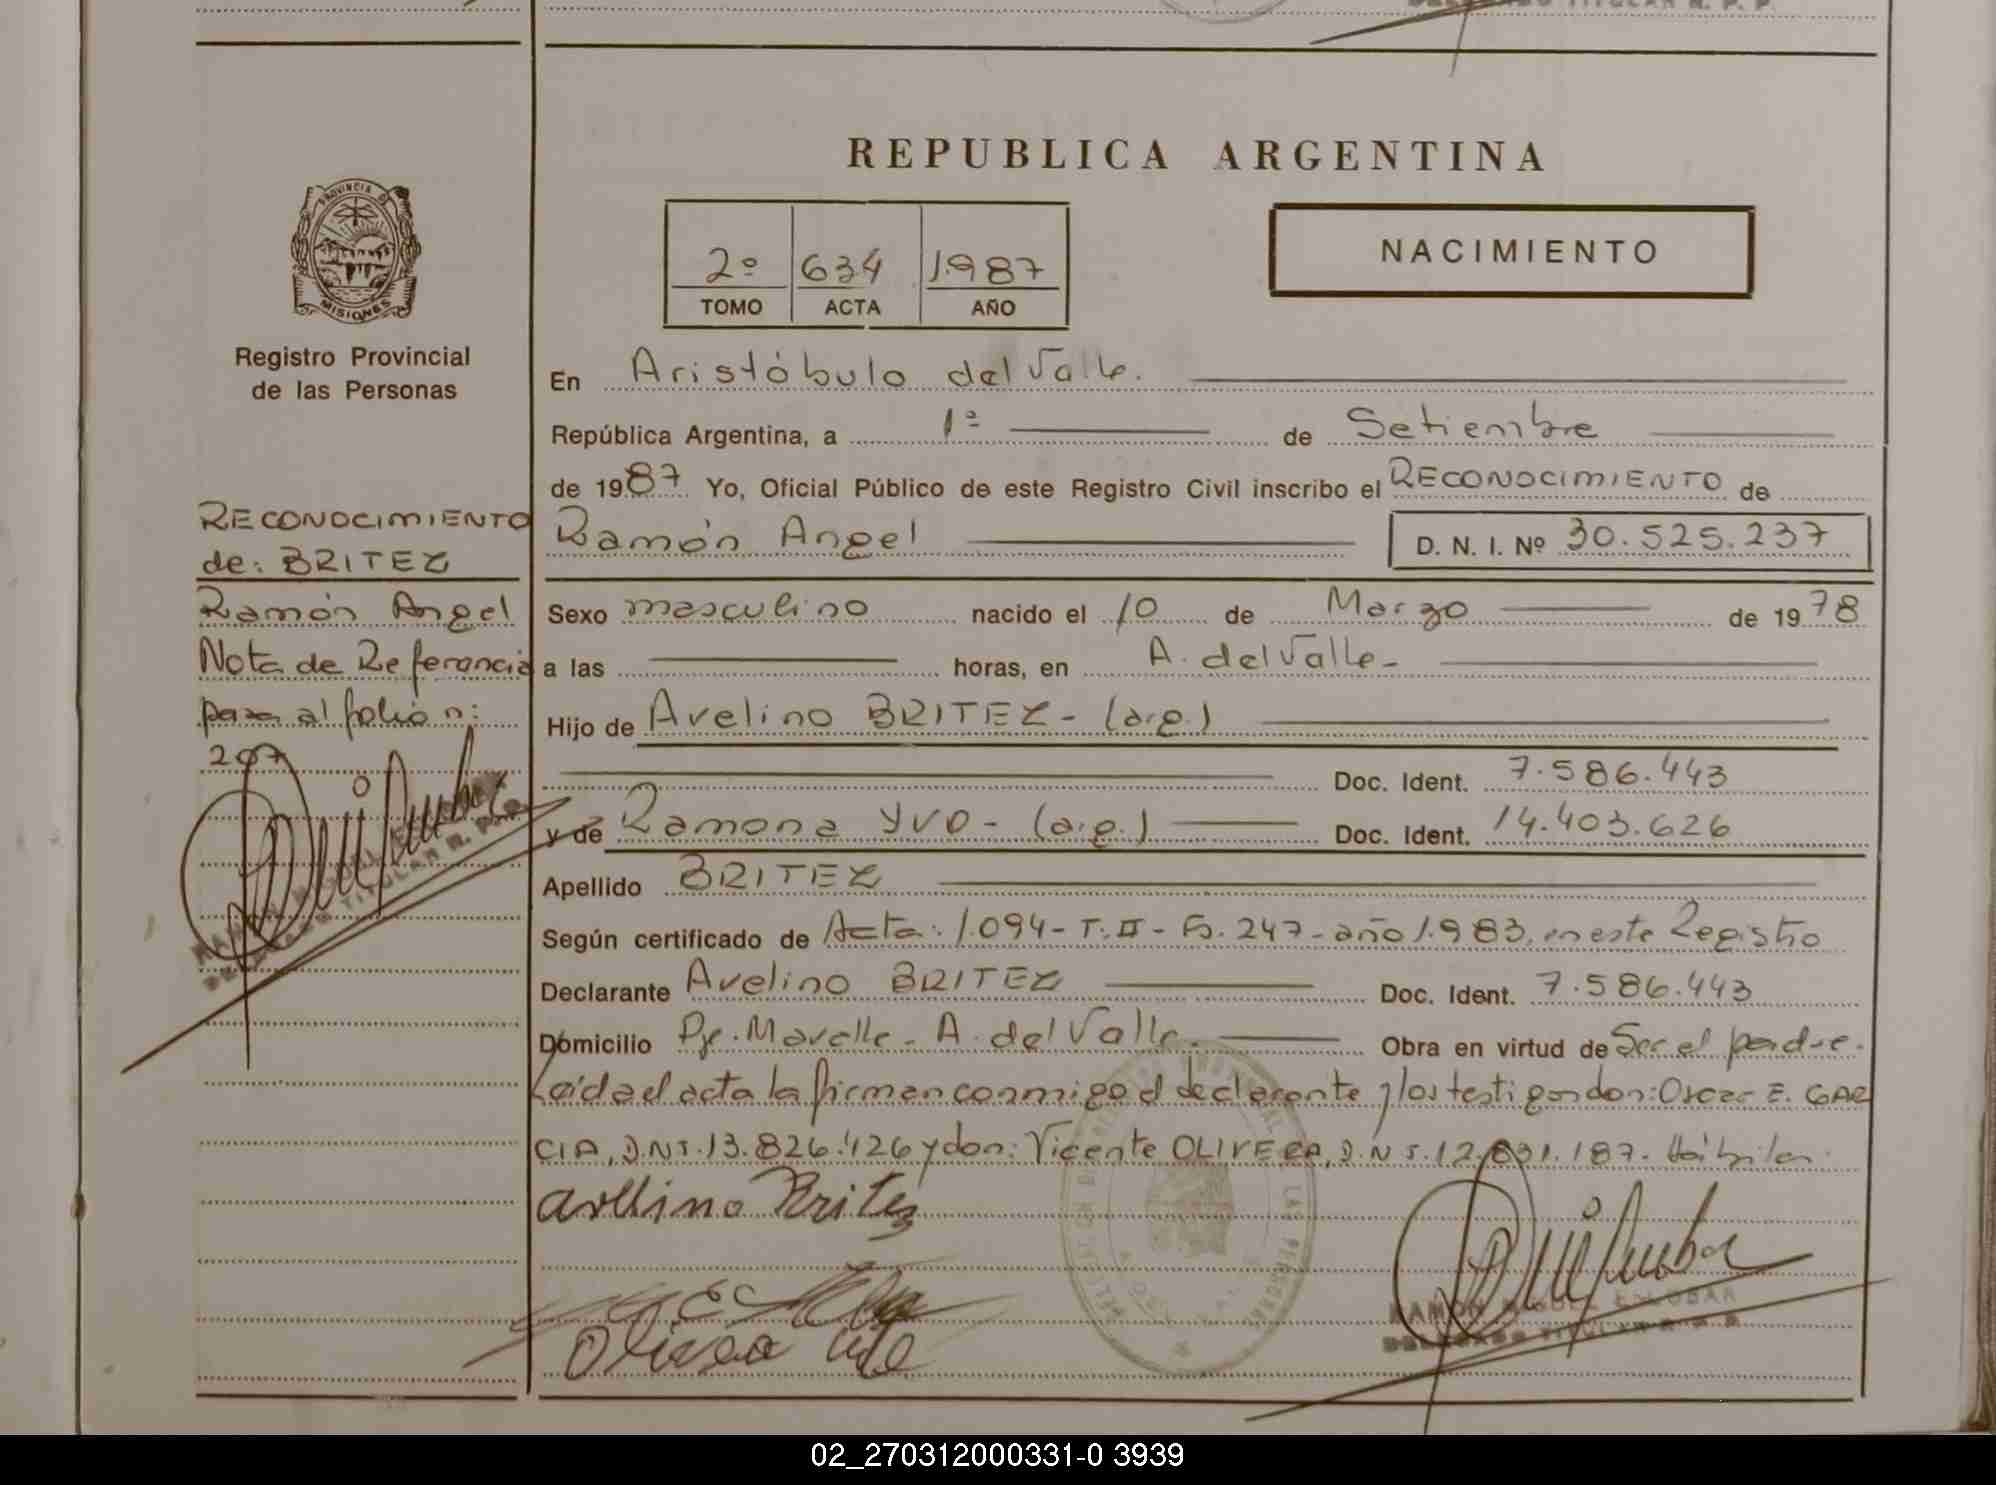 REPUBLICA ARGENTINA
PROVINCIA DE
MISIONES
2º 634 1.987
TOMO ACTA AÑO
NACIMIENTO
Registro Provincial
de las Personas
En Aristóbulo del Valle.
República Argentina, a 1º de Setiembre
de 1987 Yo, Oficial Público de este Registro Civil inscribo el RECONOCIMIENTO de
Ramón Angel D. N. I. Nº 30.525.237
RECONOCIMIENTO
de: BRITEZ
Ramón Angel
Nota de Referencia
pasa al folio n:
207
RAMON MIGUEL ESCOBAR
DELEGADO TITULAR R. P. P.
Sexo masculino nacido el 10 de Marzo de 1978
a las horas, en A. del Valle-
Hijo de Avelino BRITEZ- (arg.)
Doc. Ident. 7.586.443
y de Ramona YVO- (arg.) Doc. Ident. 14.403.626
Apellido BRITEZ
Según certificado de Acta: 1.094- T: II - Fo. 247- año 1.983, en este Registro
Declarante Avelino BRITEZ Doc. Ident. 7.586.443
Domicilio Pje. Mavalle- A. del Valle. Obra en virtud de Ser el padre.
Leída el acta la firman conmigo el declarante y los testigos don: Oscar E. GAR
CIA, D.N.I. 13.826.426 y don: Vicente OLIVERA, D.N.I. 12.831.187. Hábiles.
Avelino Britez
Olivera
RAMON MIGUEL ESCOBAR
DELEGADO TITULAR R. P. P.
02_270312000331-0 3939